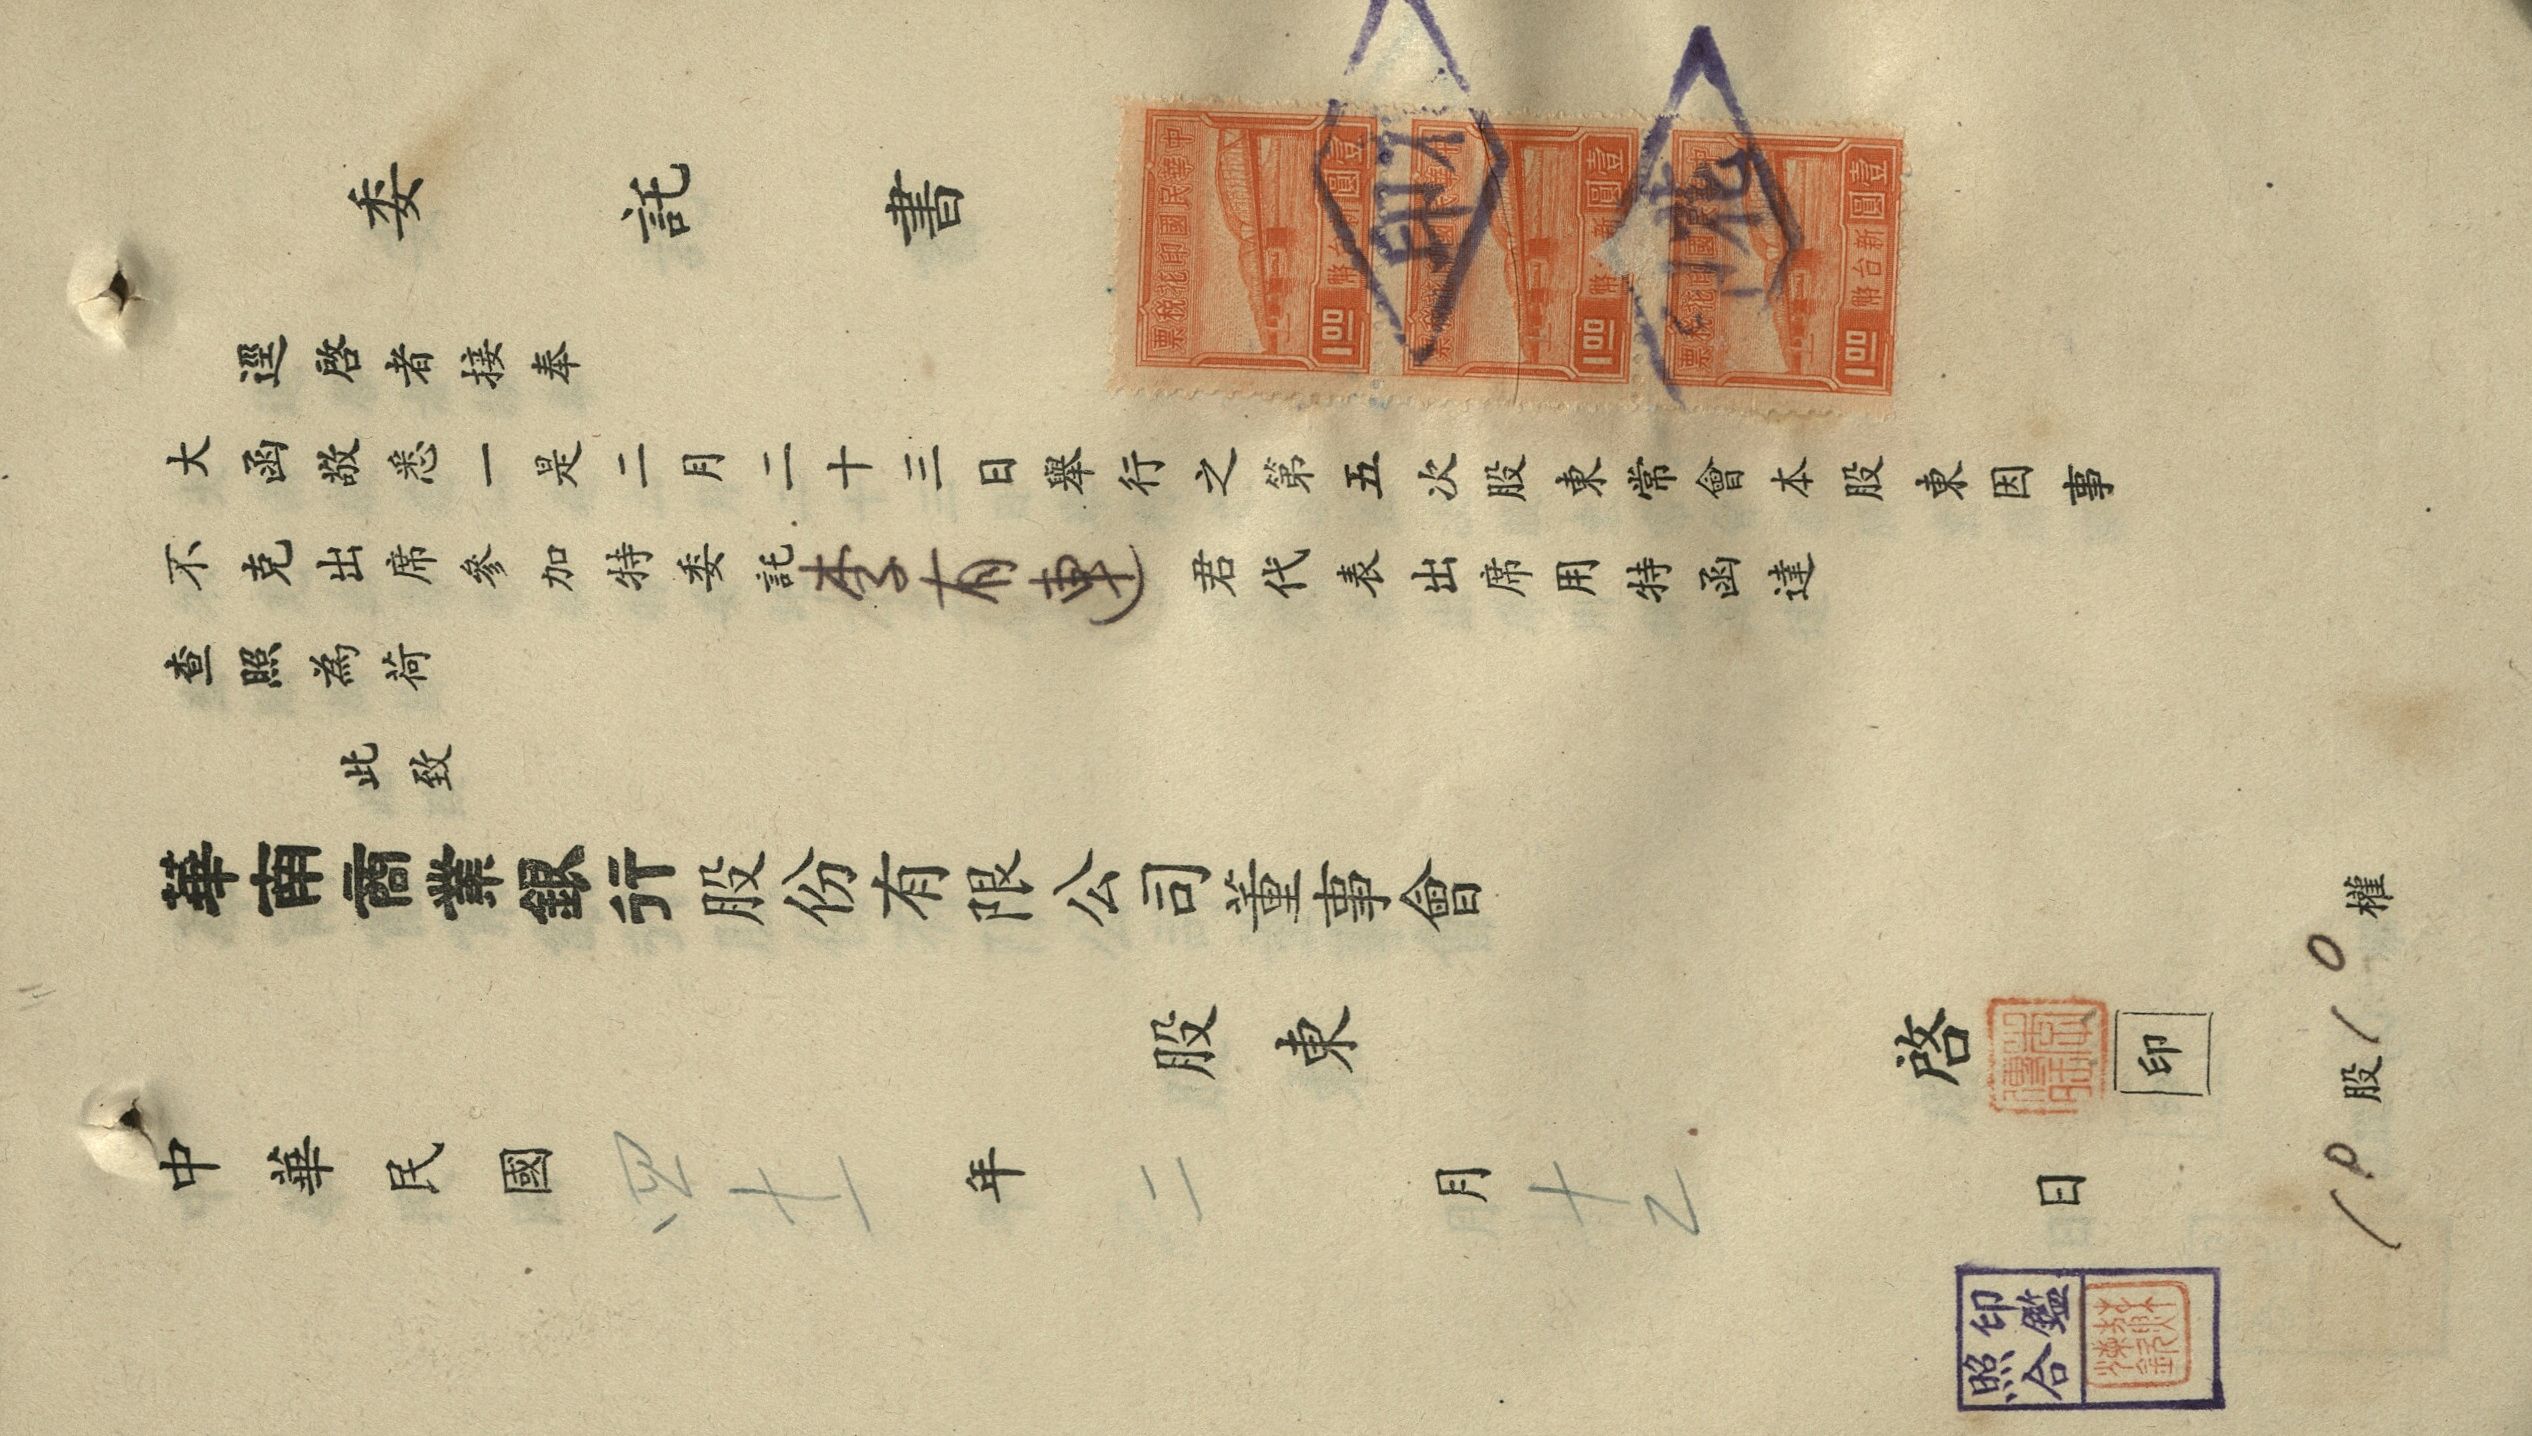 委託書
逕啓者接奉
大函敬悉一是二月二十三日舉行之第五次股東常會本股東因事
不克出席參加特委託李有連君代表出席用特函達
查照為荷
此致
華南商業銀行股份有限公司董事會
股東 啓 印
中華民國四十一年二月十乙日
10股10權
中華民國印花稅票
壹圓
新台幣
1.00
中華民國印花稅票
壹圓
新台幣
1.00
中華民國印花稅票
壹圓
新台幣
1.00
印花
印鑑
照合